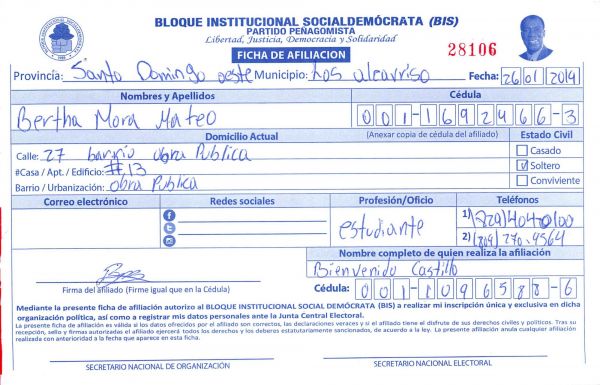 BLOQUE INSTITUCIONAL SOCIALDEMÓCRATA (BIS)
PARTIDO PEÑAGOMISTA
Libertad, Justicia, Democracia y Solidaridad
FICHA DE AFILIACION
28106
Provincia: Santo Domingo oeste Municipio: Los alcarriso Fecha: 26/01/2019
Nombres y Apellidos Cédula
Bertha Mora Mateo 001-1692466-3
Domicilio Actual (Anexar copia de cédula del afiliado) Estado Civil
Calle: 27 barrio obra Publica Casado
#Casa / Apt. / Edificio: #13 Soltero
Barrio / Urbanización: obra Publica Conviviente
Correo electrónico Redes sociales Profesión/Oficio Teléfonos
estudiante 1) (829) 404-0100
2) (809) 270-4564
Nombre completo de quien realiza la afiliación
Bienvenido Castillo
Firma del afiliado (Firme igual que en la Cédula) Cédula: 001-1096588-6
Mediante la presente ficha de afiliación autorizo al BLOQUE INSTITUCIONAL SOCIAL DEMÓCRATA (BIS) a realizar mi inscripción única y exclusiva en dicha
organización política, así como a registrar mis datos personales ante la Junta Central Electoral.
La presente ficha de afiliación es válida si los datos ofrecidos por el afiliado son correctos, las declaraciones veraces y si el afiliado tiene el disfrute de sus derechos civiles y políticos. Tras su
recepción, sello y firmas autorizadas el afiliado ejercerá todos los derechos y los deberes estatutariamente sancionados, de acuerdo a la ley. La presente afiliación anula cualquier afiliación
realizada con anterioridad a la fecha que aparece en esta ficha.
SECRETARIO NACIONAL DE ORGANIZACIÓN SECRETARIO NACIONAL ELECTORAL